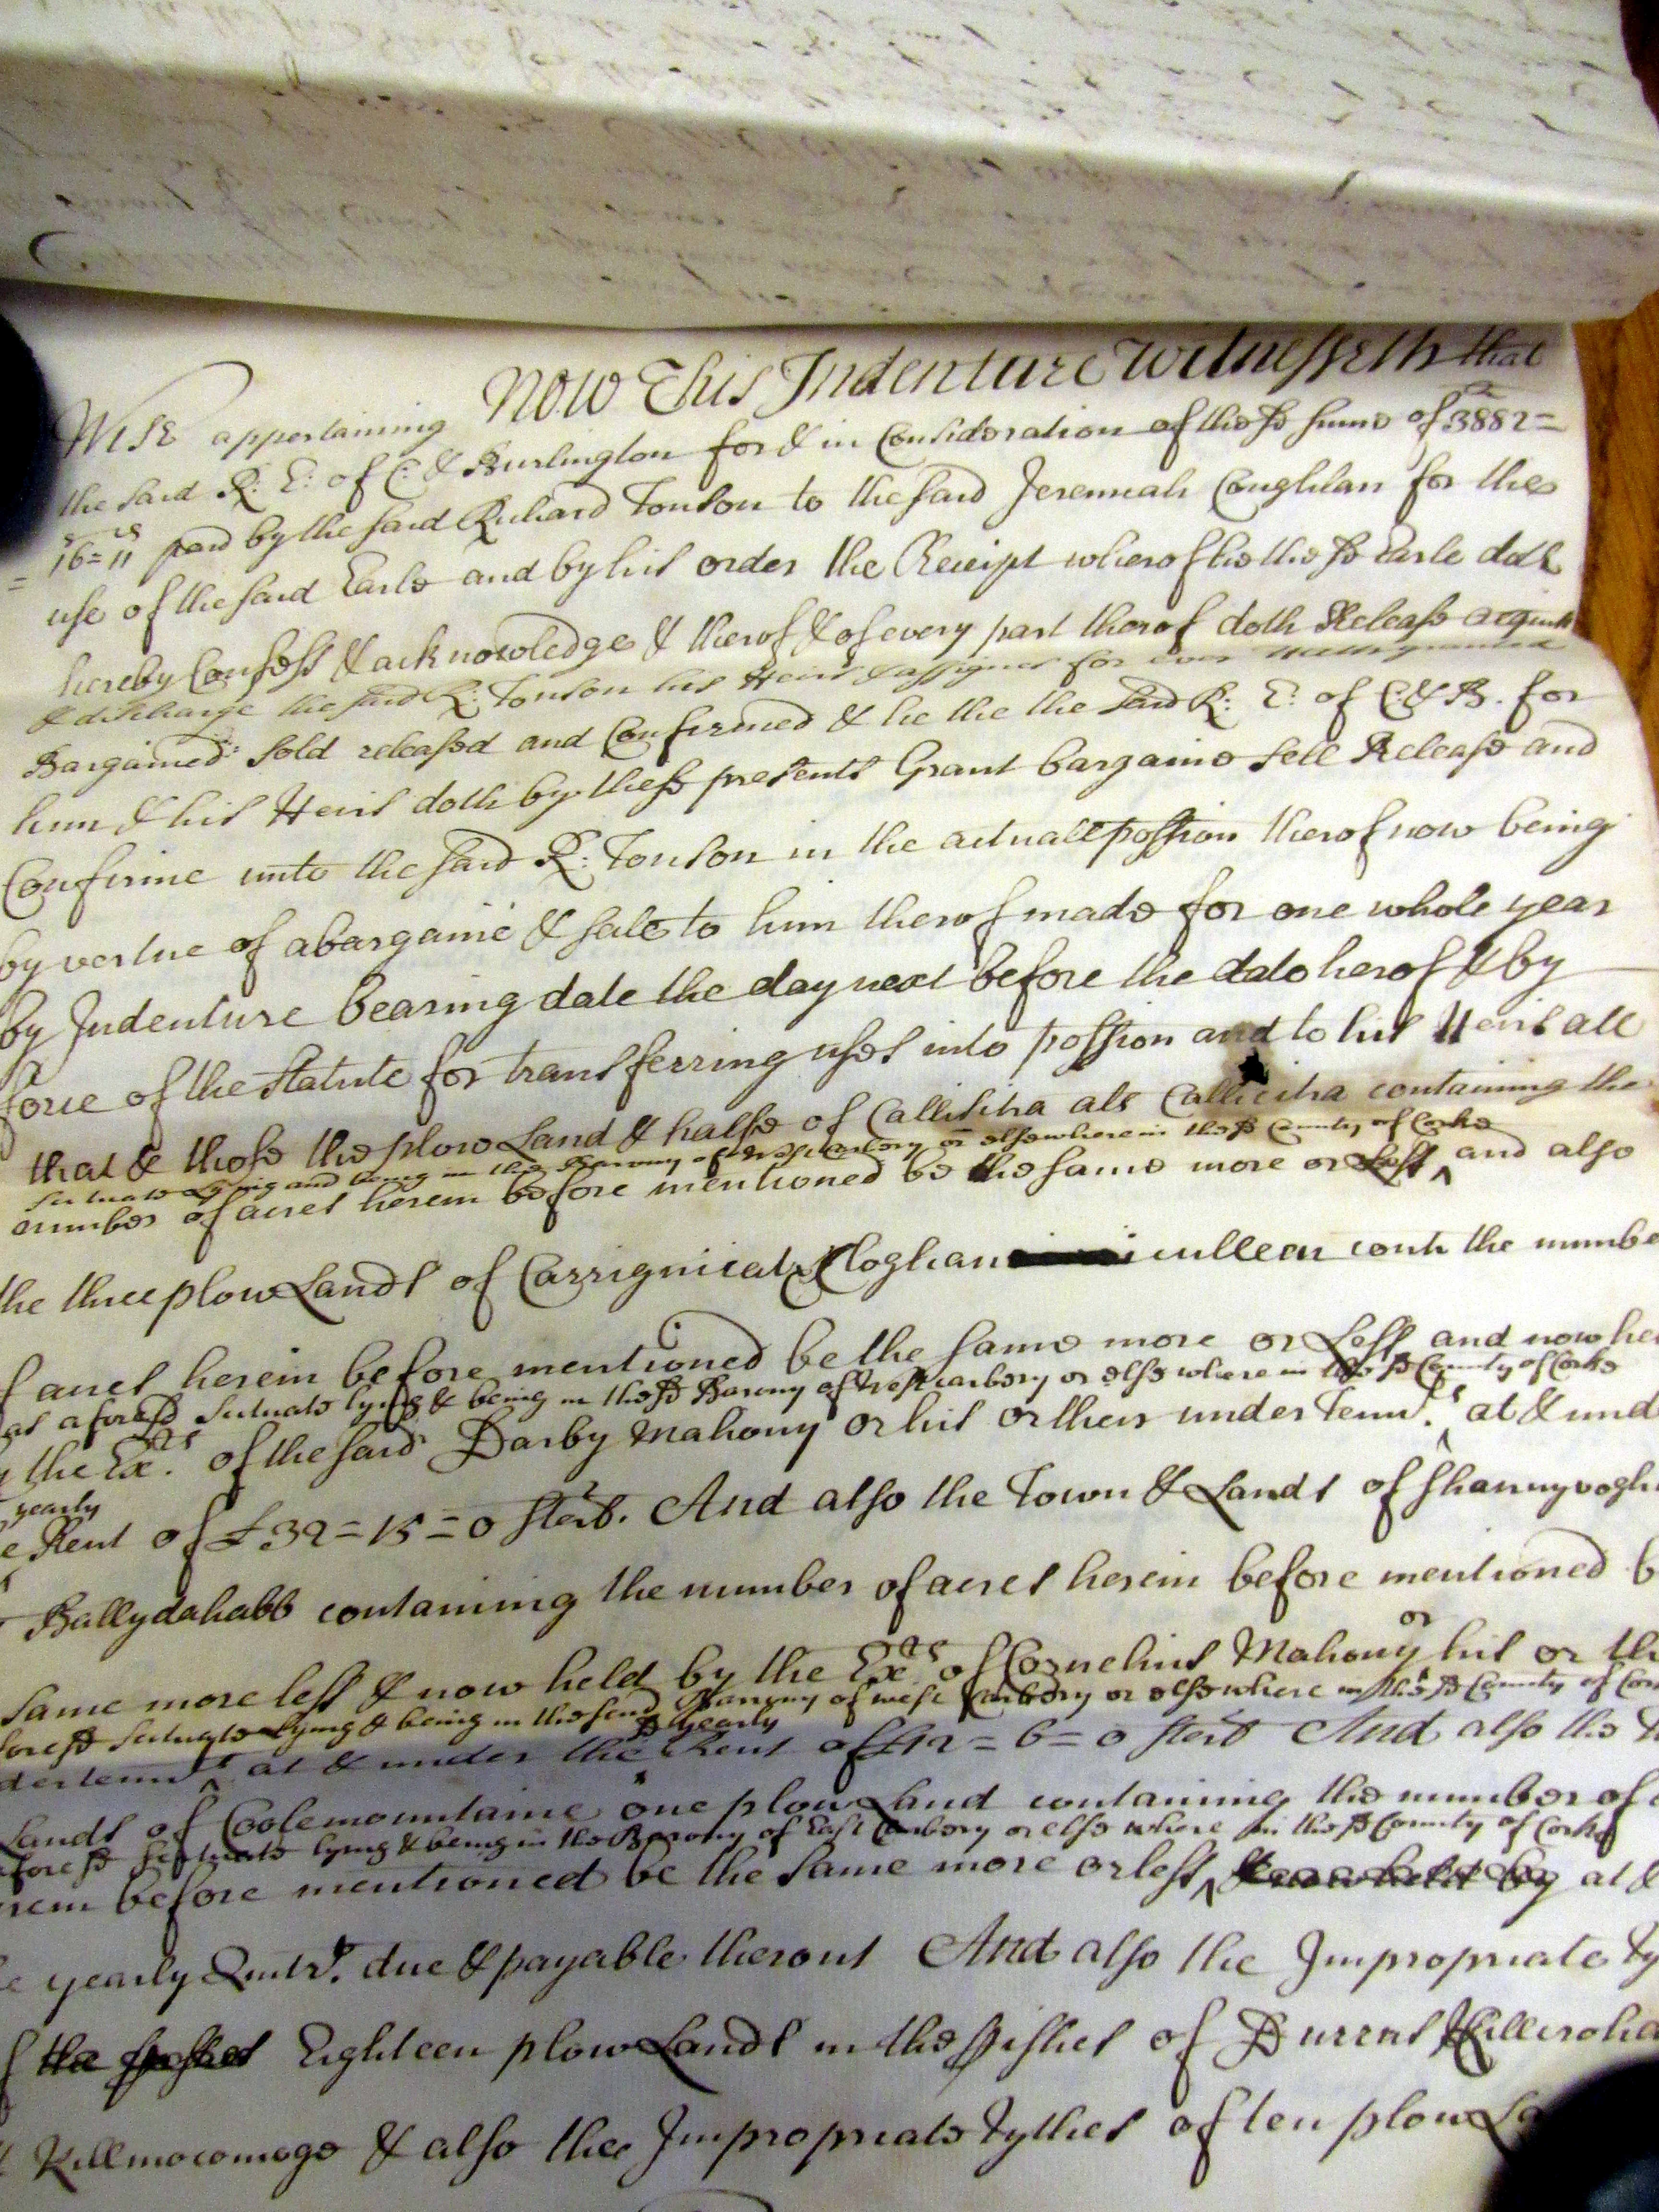 Wise appertaining Now This Indenture Witnesseth that
the said R: E: of C: & Burlington for & in Consideration of the sd sume of 3882=
= 16=11 paid by the said Richard Tonson to the said Jeremiah Coughlan for the
use of the said Earle and by his order the Receipt wherof he the sd Earle doth
hereby Confess & acknowledge & therof & of every part therof doth Release acquitt
& discharge the said R: Tonson his Heirs & assignes for ever Hath granted
Bargained sold released and Confirmed & he the the said R: E: of C: & B. for
him & his Heirs doth by these presents Grant bargaine sell Release and
Confirme unto the said R: Tonson in the actuall possion therof now being
by vertue of a bargaine & sale to him therof made for one whole year
by Indenture bearing date the day next before the date herof & by
force of the Statute for transferring uses into possion and to his Heirs all
that & those the plow Land & halfe of Callisitra als Callicitra containing the
Scituate Lying and being in the Barony of West Carbery or elsewhere in the sd County of Corke
number of acres herein before mentioned be the same more or Less ^ and also
the three plow Lands of Carrignicat & Cloghan iculleen conts the numbe
f acres herein before mentioned be the same more or Less and now hel
as aforesd Scituate lying & being in the sd Barony of West carbery or elsewhere in the sd County of Corke
the Exrs. of the said Darby Mahony or his or their under Tennts. ^ at & und
yearly
e Rent of £32=15=0 sterl. And also the Town & Lands of Shannyvogh
Ballydahabb containing the number of acres herein before mentioned b
or
same more less & now held by the Exrs of Cornelius Mahony his or th
foresd Scituate lying & being in the said Barony of west Carbery or elsewhere in the sd County of Cor
sd yearly
dertennts ^ at & under the ^ Rent of £12=6=0 sterl And also the T
Lands of Coolemountaine one plow Land containing the number of a
aforesd Scituate lying & being in the Barony of East Carbery or else where in the sd County of Corke
erein before mentioned be the same more or less ^ & now held by at &
e yearly Quitrt. due & payable therout And also the Impropriate Ty
f Eighteen plow Lands in the pishes of Durrus Killcroha
Killmocomoge & also the Impropriate Tythes of ten plow La